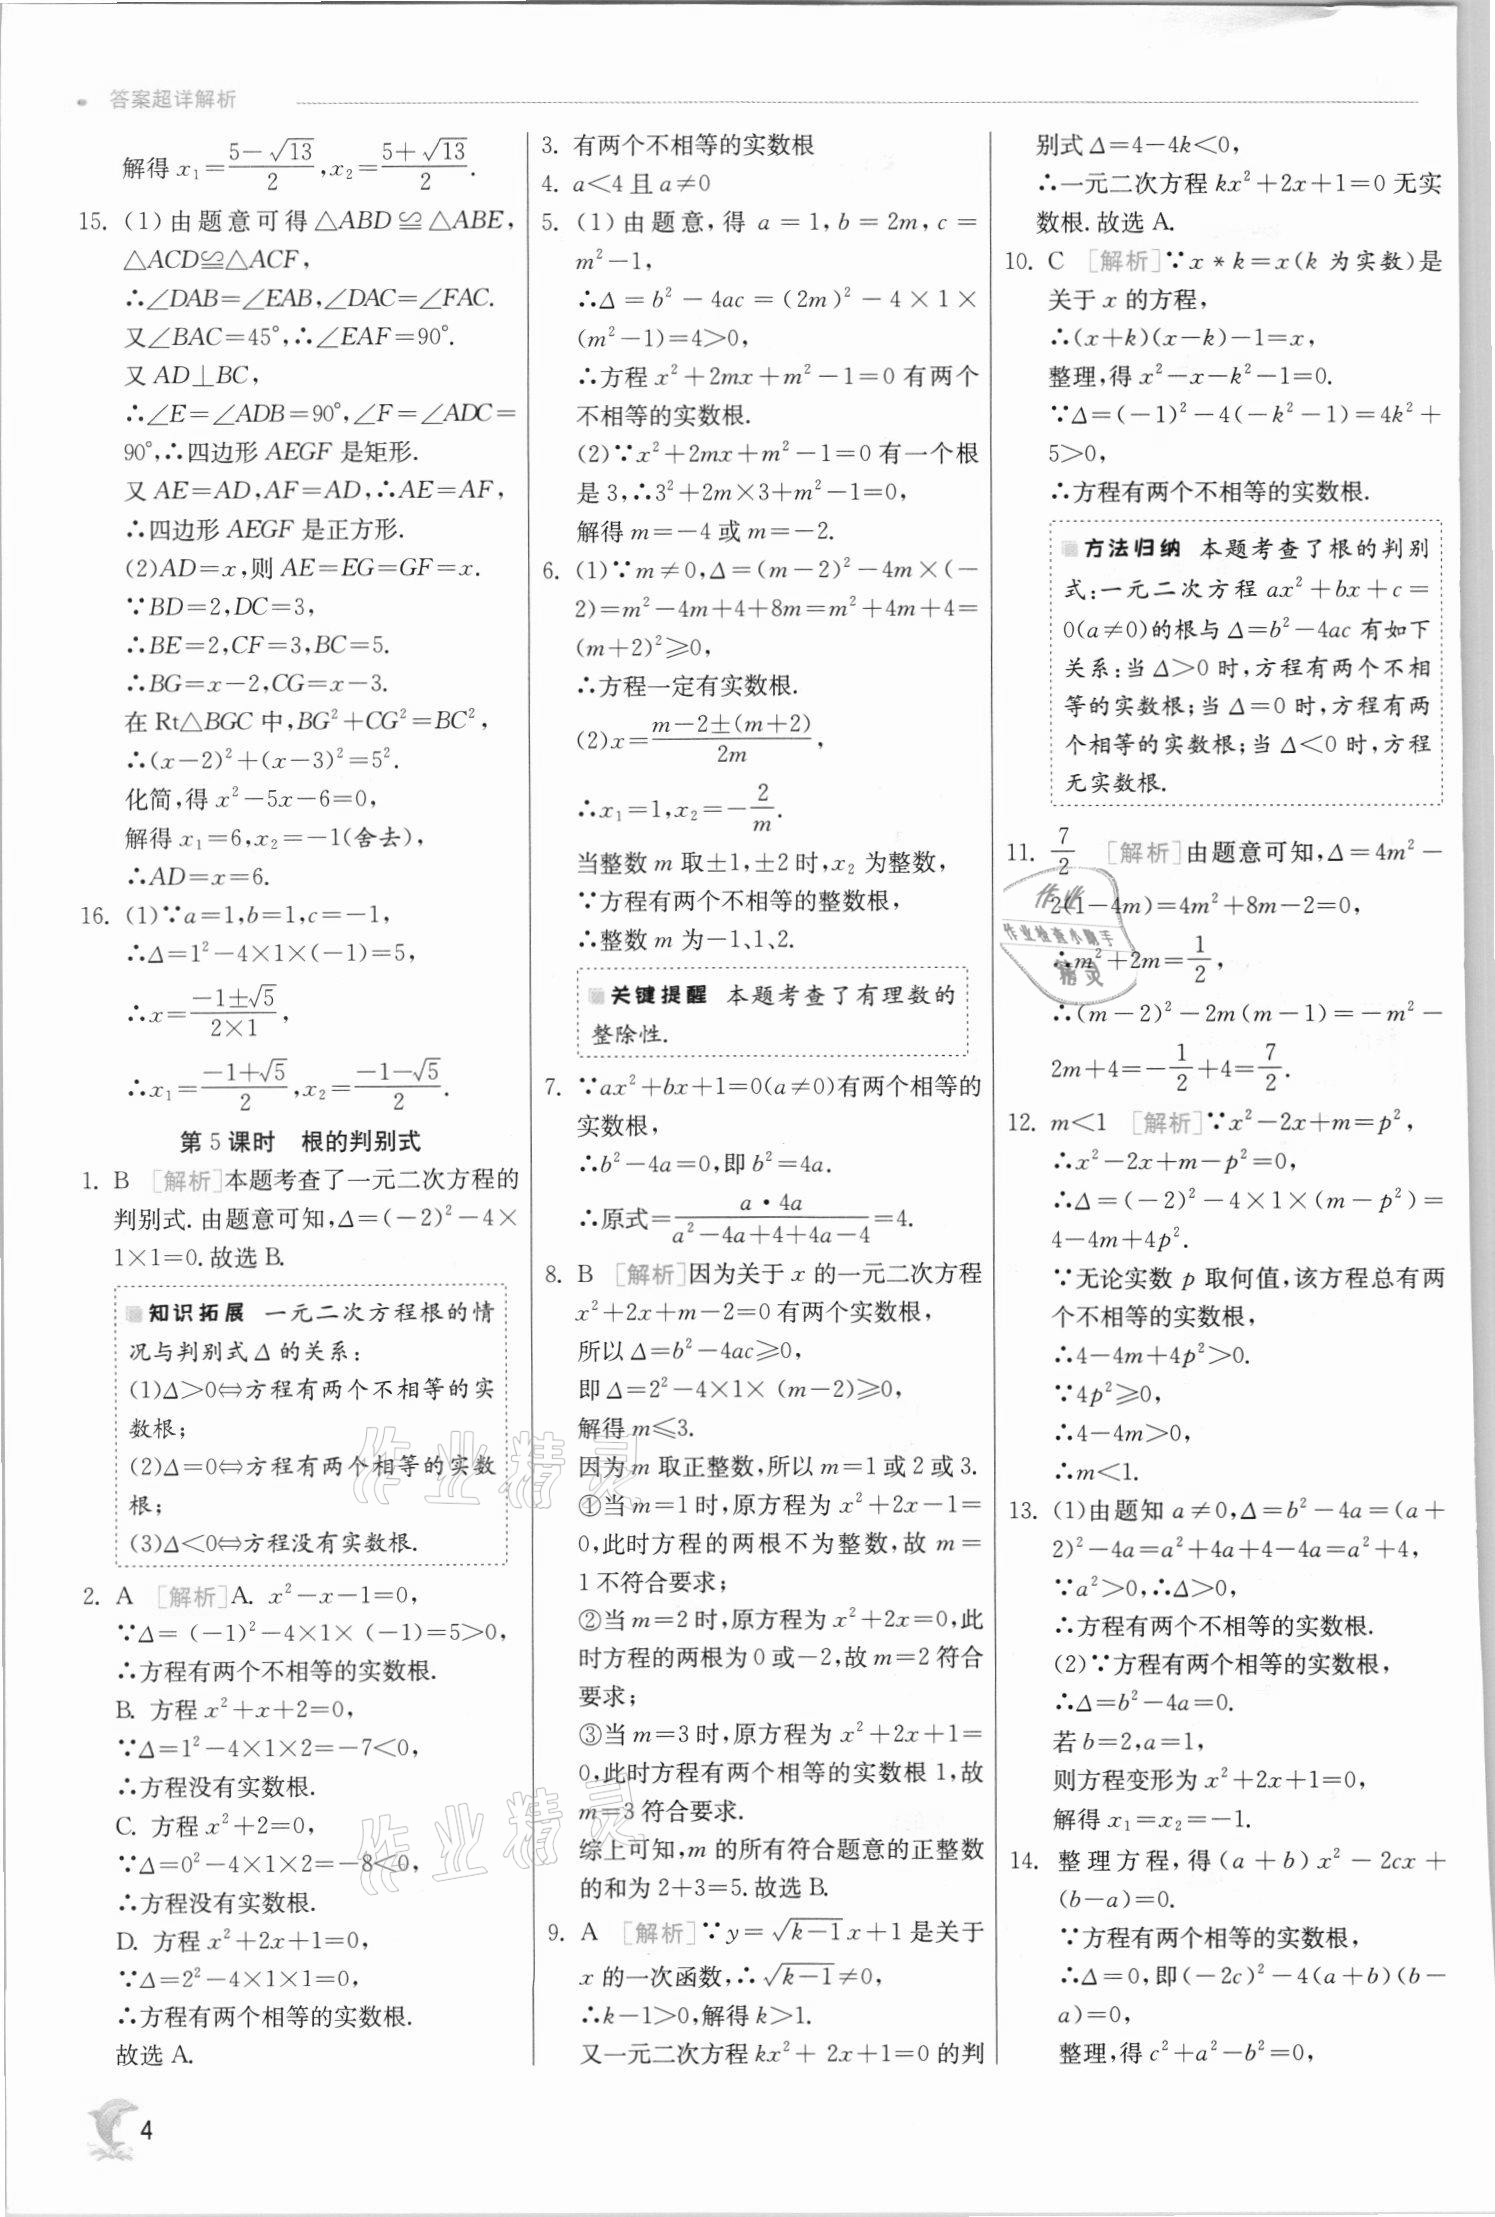 答案超详解析
解得 x₁=(5-√13)/2,x₂=(5+√13)/2.
15. (1)由题意可得△ABD≌△ABE,
△ACD≌△ACF,
∴∠DAB=∠EAB,∠DAC=∠FAC.
又∠BAC=45°,∴∠EAF=90°.
又 AD⊥BC,
∴∠E=∠ADB=90°,∠F=∠ADC=
90°,∴四边形 AEGF 是矩形.
又 AE=AD,AF=AD,∴AE=AF,
∴四边形 AEGF 是正方形.
(2)AD=x,则 AE=EG=GF=x.
∵BD=2,DC=3,
∴BE=2,CF=3,BC=5.
∴BG=x-2,CG=x-3.
在 Rt△BGC 中,BG²+CG²=BC²,
∴(x-2)²+(x-3)²=5².
化简,得 x²-5x-6=0,
解得 x₁=6,x₂=-1(舍去),
∴AD=x=6.
16. (1)∵a=1,b=1,c=-1,
∴Δ=1²-4×1×(-1)=5,
∴x=(-1±√5)/(2×1),
∴x₁=(-1+√5)/2,x₂=(-1-√5)/2.
第 5 课时 根的判别式
1. B [解析]本题考查了一元二次方程的
判别式. 由题意可知,Δ=(-2)²-4×
1×1=0. 故选 B.
知识拓展 一元二次方程根的情
况与判别式 Δ 的关系:
(1)Δ>0⇔方程有两个不相等的实
数根;
(2)Δ=0⇔方程有两个相等的实数
根;
(3)Δ<0⇔方程没有实数根.
2. A [解析]A. x²-x-1=0,
∵Δ=(-1)²-4×1×(-1)=5>0,
∴方程有两个不相等的实数根.
B. 方程 x²+x+2=0,
∵Δ=1²-4×1×2=-7<0,
∴方程没有实数根.
C. 方程 x²+2=0,
∵Δ=0²-4×1×2=-8<0,
∴方程没有实数根.
D. 方程 x²+2x+1=0,
∵Δ=2²-4×1×1=0,
∴方程有两个相等的实数根.
故选 A.
3. 有两个不相等的实数根
4. a<4 且 a≠0
5. (1)由题意,得 a=1,b=2m,c=
m²-1,
∴Δ=b²-4ac=(2m)²-4×1×
(m²-1)=4>0,
∴方程 x²+2mx+m²-1=0 有两个
不相等的实数根.
(2)∵x²+2mx+m²-1=0 有一个根
是 3,∴3²+2m×3+m²-1=0,
解得 m=-4 或 m=-2.
6. (1)∵m≠0,Δ=(m-2)²-4m×(-
2)=m²-4m+4+8m=m²+4m+4=
(m+2)²≥0,
∴方程一定有实数根.
(2)x=(m-2±(m+2))/2m,
∴x₁=1,x₂=-2/m.
当整数 m 取±1,±2 时,x₂ 为整数,
∵方程有两个不相等的整数根,
∴整数 m 为-1、1、2.
关键提醒 本题考查了有理数的
整除性.
7. ∵ax²+bx+1=0(a≠0)有两个相等的
实数根,
∴b²-4a=0,即 b²=4a.
∴原式=(a·4a)/(a²-4a+4+4a-4)=4.
8. B [解析]因为关于 x 的一元二次方程
x²+2x+m-2=0 有两个实数根,
所以 Δ=b²-4ac≥0,
即 Δ=2²-4×1×(m-2)≥0,
解得 m≤3.
因为 m 取正整数,所以 m=1 或 2 或 3.
①当 m=1 时,原方程为 x²+2x-1=
0,此时方程的两根不为整数,故 m=
1 不符合要求;
②当 m=2 时,原方程为 x²+2x=0,此
时方程的两根为 0 或-2,故 m=2 符合
要求;
③当 m=3 时,原方程为 x²+2x+1=
0,此时方程有两个相等的实数根 1,故
m=3 符合要求.
综上可知,m 的所有符合题意的正整数
的和为 2+3=5. 故选 B.
9. A [解析]∵y=√(k-1)x+1 是关于
x 的一次函数,∴√(k-1)≠0,
∴k-1>0,解得 k>1.
又一元二次方程 kx²+2x+1=0 的判
别式 Δ=4-4k<0,
∴一元二次方程 kx²+2x+1=0 无实
数根. 故选 A.
10. C [解析]∵x*k=x(k 为实数)是
关于 x 的方程,
∴(x+k)(x-k)-1=x,
整理,得 x²-x-k²-1=0.
∵Δ=(-1)²-4(-k²-1)=4k²+
5>0,
∴方程有两个不相等的实数根.
方法归纳 本题考查了根的判别
式:一元二次方程 ax²+bx+c=
0(a≠0)的根与 Δ=b²-4ac 有如下
关系:当 Δ>0 时,方程有两个不相
等的实数根;当 Δ=0 时,方程有两
个相等的实数根;当 Δ<0 时,方程
无实数根.
11. 7/2 [解析]由题意可知,Δ=4m²-
2(1-4m)=4m²+8m-2=0,
∴m²+2m=1/2,
∴(m-2)²-2m(m-1)=-m²-
2m+4=-1/2+4=7/2.
12. m<1 [解析]∵x²-2x+m=p²,
∴x²-2x+m-p²=0,
∴Δ=(-2)²-4×1×(m-p²)=
4-4m+4p².
∵无论实数 p 取何值,该方程总有两
个不相等的实数根,
∴4-4m+4p²>0.
∵4p²≥0,
∴4-4m>0,
∴m<1.
13. (1)由题知 a≠0,Δ=b²-4a=(a+
2)²-4a=a²+4a+4-4a=a²+4,
∵a²>0,∴Δ>0,
∴方程有两个不相等的实数根.
(2)∵方程有两个相等的实数根,
∴Δ=b²-4a=0.
若 b=2,a=1,
则方程变形为 x²+2x+1=0,
解得 x₁=x₂=-1.
14. 整理方程,得(a+b)x²-2cx+
(b-a)=0.
∵方程有两个相等的实数根,
∴Δ=0,即(-2c)²-4(a+b)(b-
a)=0,
整理,得 c²+a²-b²=0,
作业
作业检查小助手
精灵
作业精灵
作业精灵
4